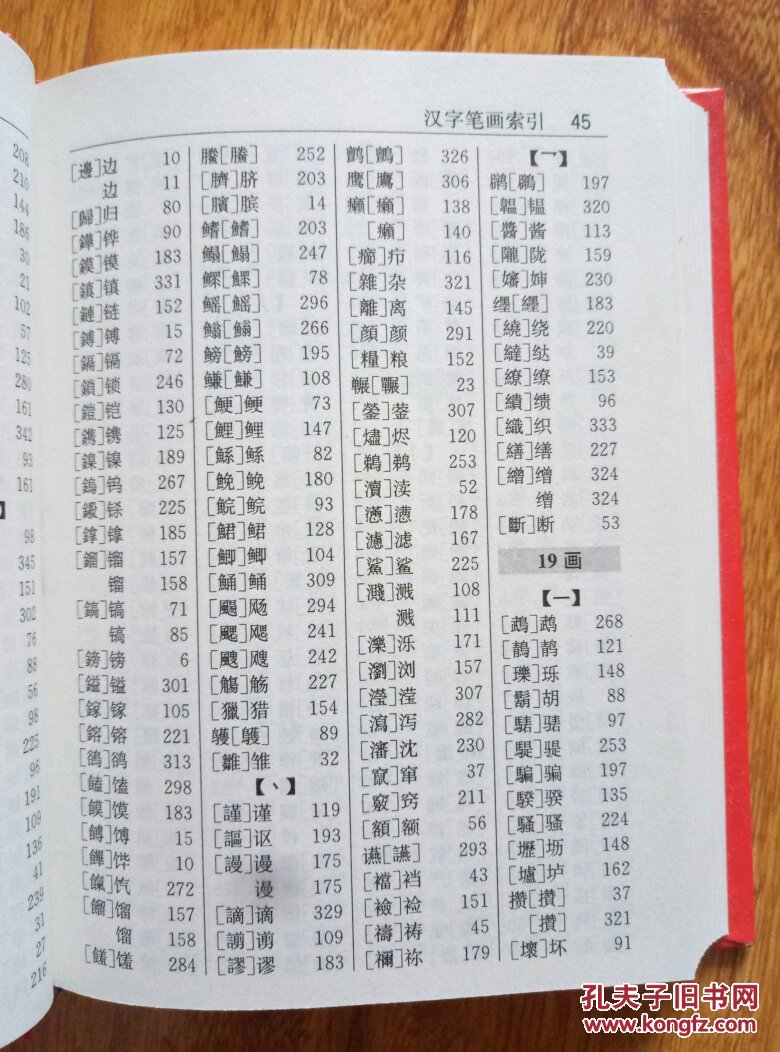 汉字笔画索引 45
208
210
144
186
30
21
102
57
125
280
161
342
93
161
】
98
345
151
302
76
88
56
98
225
96
191
109
136
41
239
31
27
216
[邊]边 10
边 11
[歸]归 80
[鏵]铧 90
[鏌]镆 183
[鎮]镇 331
[鏈]链 152
[鎛]镈 15
[鎘]镉 72
[鎖]锁 246
[鎧]铠 130
[鎸]镌 125
[鎳]镍 189
[鎢]钨 267
[鎩]铩 225
[鎿]镎 185
[鎦]镏 157
镏 158
[鎬]镐 71
镐 85
[鎊]镑 6
[鎰]镒 301
[鎵]镓 105
[鎔]镕 221
[鵒]鹆 313
[饁]馌 298
[饃]馍 183
[餺]馎 15
[饆]饆 10
[餼]饩 272
[餾]馏 157
馏 158
[饈]馐 284
䲢[鰧] 252
[臍]脐 203
[臏]膑 14
鳍[鰭] 203
鳎[鰨] 247
鳏[鰥] 78
鳐[鰩] 296
鳛[鰯] 266
鳑[鰟] 195
鳒[鰜] 108
[鯁]鲠 73
[鯉]鲤 147
[鯀]鲧 82
[鮸]鮸 180
[鯇]鲩 93
[鮶]鮶 128
[鯽]鲫 104
[鯒]鲬 309
[颺]飏 294
[颸]飔 241
[颼]飕 242
[觴]觞 227
[獵]猎 154
鹱[鸌] 89
[雛]雏 32
【丶】
[謹]谨 119
[謳]讴 193
[謾]谩 175
谩 175
[謫]谪 329
[謭]谫 109
[謬]谬 183
鹯[鸇] 326
鹰[鷹] 306
癞[癩] 138
[癩] 140
[癤]疖 116
[雜]杂 321
[離]离 145
[顔]颜 291
[糧]粮 152
冁[囅] 23
[鎣]蓥 307
[燼]烬 120
[鵜]鹈 253
[瀆]渎 52
[懣]懑 178
[濾]滤 167
[鯊]鲨 225
[濺]溅 108
溅 111
[濼]泺 171
[瀏]浏 157
[瀅]滢 307
[瀉]泻 282
[瀋]沈 230
[竄]窜 37
[竅]窍 211
[額]额 56
讌[讌] 293
[襠]裆 43
[襝]裣 151
[禱]祷 45
[禰]祢 179
【乛】
䴙[鷿] 197
[韞]韫 320
[醬]酱 113
[隴]陇 159
[嬸]婶 230
纆[纆] 183
[繞]绕 220
[繨]𫄤 39
[繚]缭 153
[繢]缋 96
[織]织 333
[繕]缮 227
[繒]缯 324
缯 324
[斷]断 53
19画
【一】
[鵡]鹉 268
[鶄]䴖 121
[瓅]𬍛 148
[鬍]胡 88
[騞]𬴃 97
[騠]𫘨 253
[騙]骗 197
[騤]骙 135
[騷]骚 224
[壢]坜 148
[壚]垆 162
攒[攢] 37
[攢] 321
[壞]坏 91
孔夫子旧书网
www.kongfz.com